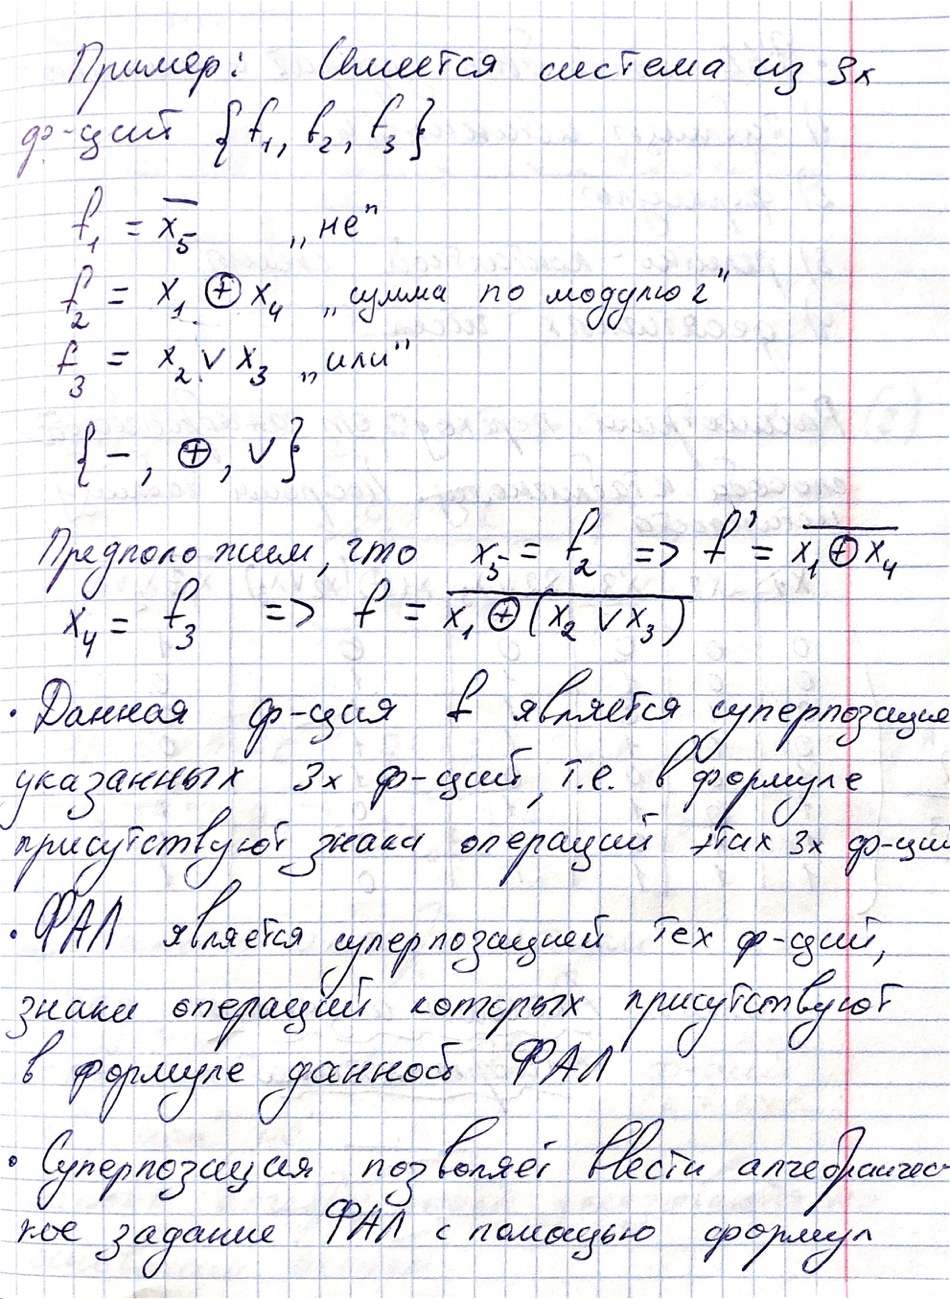 Пример: Имеется система из 3х
ф-ций {f₁, f₂, f₃}
f₁ = x̅₅ „не"
f₂ = x₁ ⊕ x₄ „сумма по модулю 2"
f₃ = x₂ ∨ x₃ „или"
{ – , ⊕, ∨}
Предположим, что x₅ = f₂ => f' = \overline{x₁ ⊕ x₄}
x₄ = f₃ => f = \overline{x₁ ⊕ (x₂ ∨ x₃)}
· Данная ф-ция f является суперпозацие
указанных 3х ф-ций, т.е. в формуле
присутствуют знаки операций этих 3х ф-ций
· ФАЛ является суперпозацией тех ф-ций,
знаки операций которых присутствуют
в формуле данной ФАЛ
· Суперпозация позволяет ввести алгебраичес-
кое задание ФАЛ с помощью формул